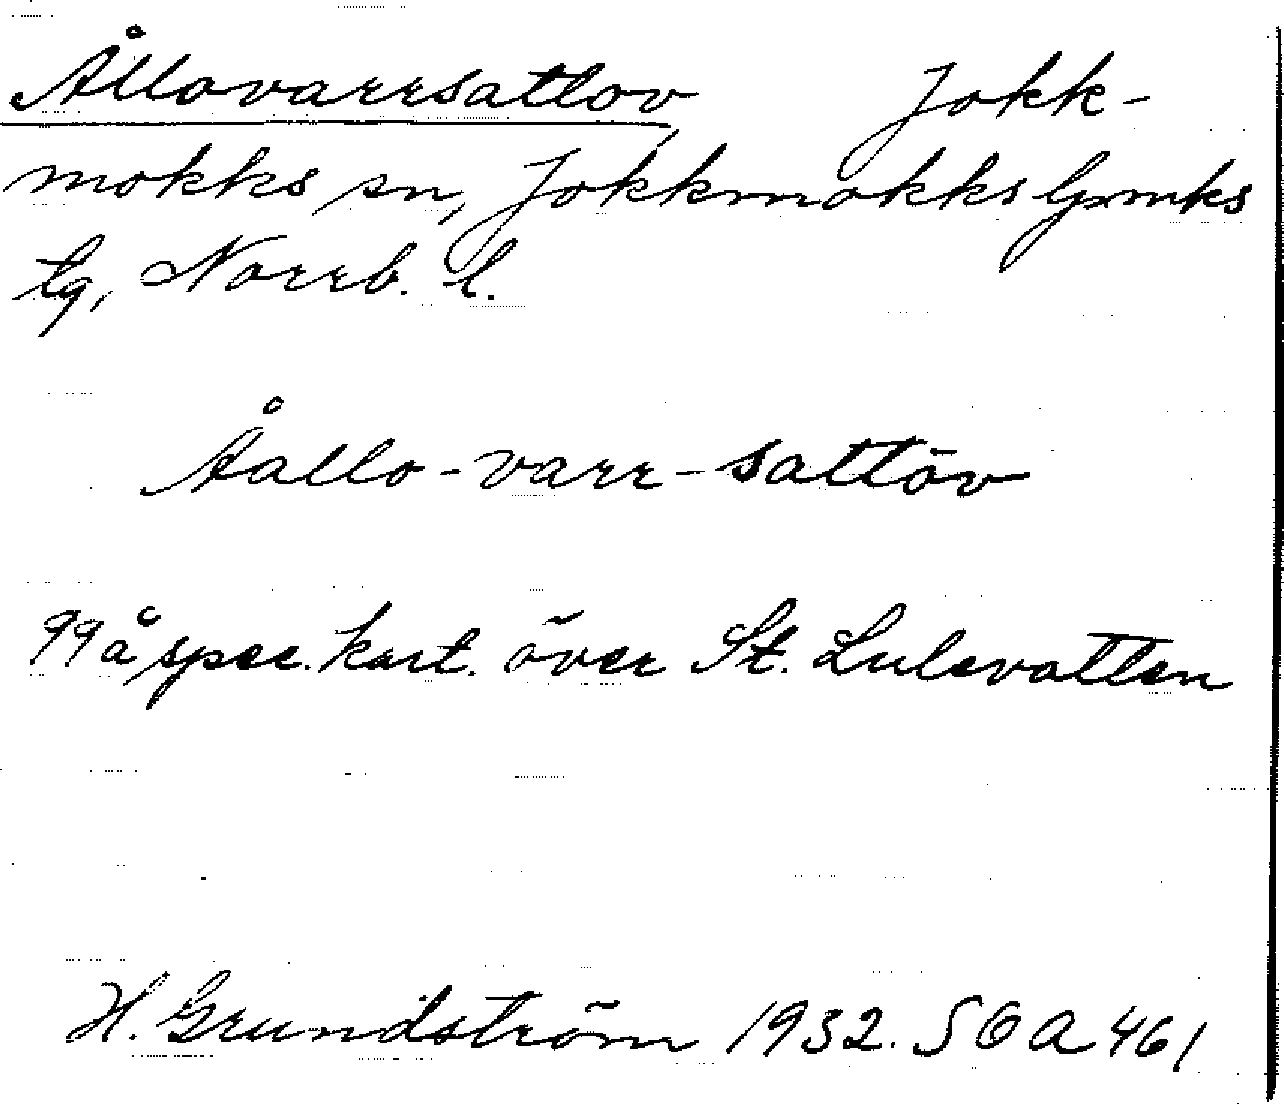 Ållovarrsattov, Jokk-
mokks sn, Jokkmokks lpmks
tg, Norrb. l.
Åallo-varr-sattōv
99 å spec. kart. över St. Lulevatten
H. Grundström 1932. SOA 461